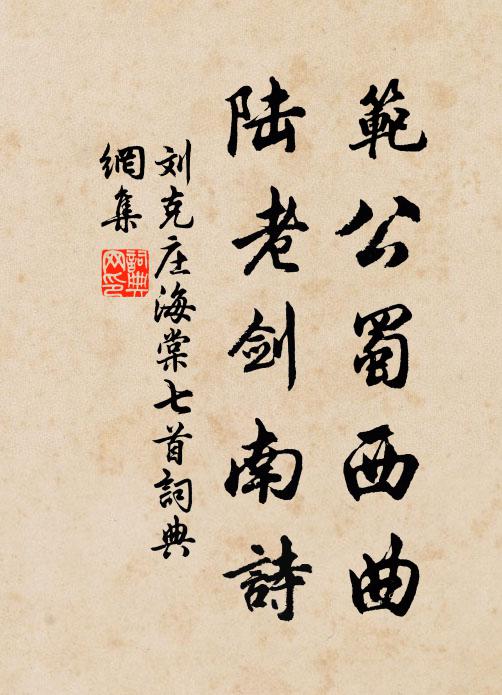 範公蜀西曲
陆老剑南詩
刘克庄海棠七首詞典
網集
詞典
网印